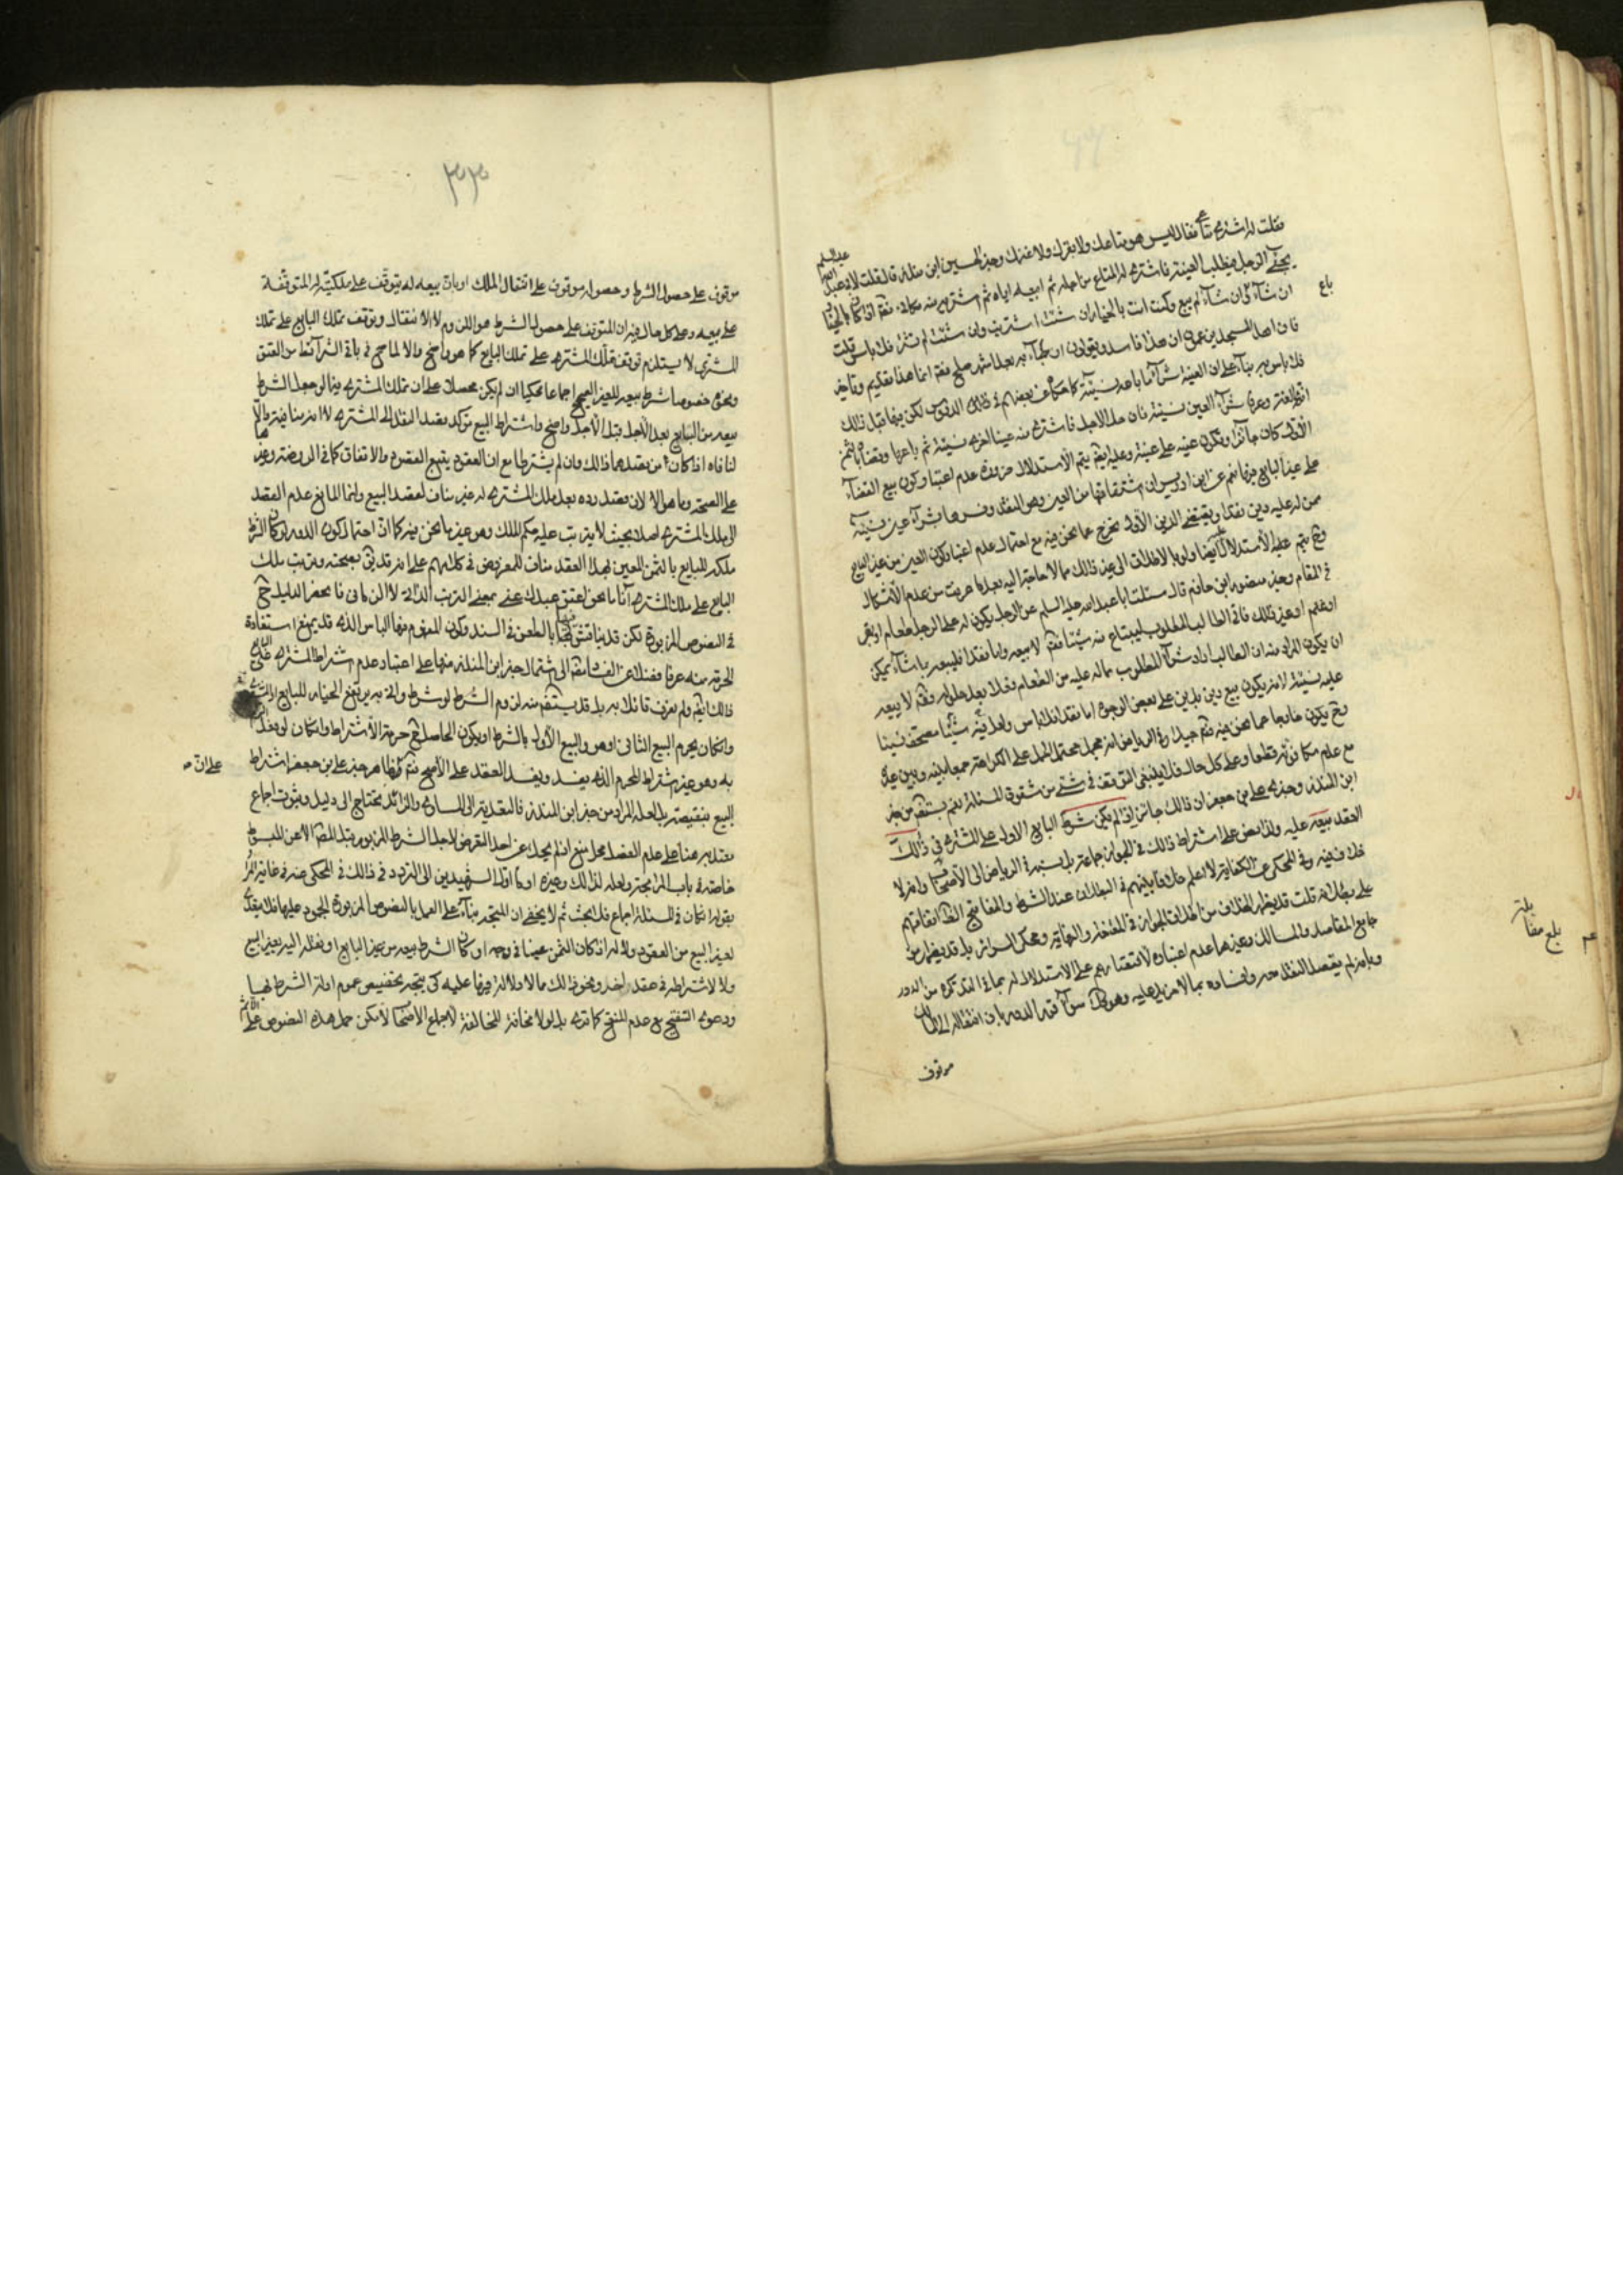 فقلت له اشتري متاعي فقال ليس هو متاعك ولا بقرك ولا غنمك وخبر الحسين ابن منذر قال قلت لابي عبد الله عليه السلم
يجيئني الرجل فيطلب العينة فاشتري له المتاع من اجله ثم ابيعه اياه ثم اشتريه منه مكاني فقال اذا كان بالخيار
ان شاء باع وان شاء لم يبع وكنت انت بالخيار ان شئت اشتريت وان شئت لم تشتر فلا باس قلت
فان اهل المسجد يزعمون ان هذا فاسد ويقولون ان جاء به بعد اشهر صلح فقال انما هذا تقديم وتاخير
فلا باس به بناء على ان العينة شراء ما باعه نسيئة كما حكاه عن بعضهم في الدروس لكن فيها قبل ذلك
العينة وعرفا شراء العين نسيئة فان حل الاجل فاشترى منه عينا اخرى نسيئة ثم باعها وقضاه الثمن
الاول كان جائزا وتكون عينة على عينة وعليه يتم الاستدلال ضرورة عدم اعتبار كون بيع القضاء
على عين البايع فيها نعم عن ابن ادريس ان اشتقاقها من العين وهو النقد وفسرها بشراء عين نسيئة
ممن له عليه دين نقدا ويقتضي الدين الاول تخرج عما نحن فيه مع احتمال عدم اعتبار كون العين من غير البايع
عليه الاستدلال ايضا ولو بالاطلاق الى غير ذلك مما لا حاجة اليه بعد ما عرفت من عدم الاشكال
في المقام وخبر منصور ابن حازم قال سئلت ابا عبد الله عليه السلم عن الرجل يكون له على الرجل طعام او بقر
او غنم او غير ذلك فاتى الطالب المطلوب ليبتاع منه شيئا فقال لا يبيعه واما نقدا فليبعه بما شاء يمكن
ان يكون المراد منه ان الطالب اراد شراء المطلوب ماله عليه من الطعام وفيه لا يبيعه
عليه نسيئة لانه يكون بيع دين بدين على بعض الوجوه اما نقدا فلا باس ولعل فيه شيئا مصحف نسيئا
يكون خارجا عما نحن فيه الرياض انه مجمل محتمل الحمل على الكراهة جمعا بينه وبين غيره
مع علم مكافؤته قطعا وعلى كل حال فلا ينبغي التوقف في شئ من شقوق المسئلة نعم يستفاد من خبر
ابن المنذر وخبر علي بن جعفر ان ذلك جائز اذا لم يكن شرط البايع الاول على المشتري في ذلك
العقد بيعه عليه والا بعض على اشتراط ذلك في الجواز جماعة بل نسبه في الرياض الى الاصحاب وانه لا
خلاف فيه وفي المحكي عن الكفاية لا اعلم خلافا بينهم في البطلان عند الشرط والمفاتيح اتفاقهم
على بطلانه قلت قد يظهر الخلاف من اطلاق الجواز في المقنعة والنهاية ومحكي السرائر بل قد يظهر من
جامع المقاصد والمسالك وغيرهما عدم اعتباره لاقتصارهم على الاستدلال له بما في التذكرة من الدور
وبانه لم يقصد النقل وافساده بما لا مزيد عليه وهو كذلك سواء قرر الدور بان انتقاله الى المالك
موقوف
باع
بلغ
بلغ مقا
٣٣
موقوف على حصول الشرط وحصوله موقوف على انتقال الملك او بان بيعه له يتوقف على ملكيته له المتوقفة
على بيعه وعلى كل حال فيه ان المتوقف على حصول الشرط هو اللزوم لا الانتقال وتوقف تملك البايع على تملك
المشتري لا يستلزم توقف تملك المشتري على تملك البايع كما هو واضح والا لما صح في باقي الشرائط من العتق
ونحوه خصوصا شرط بيعه للغير الصحيح اجماعا محكيا ان لم يكن محصلا على ان تملك المشتري فيما لو جعل الشرط
بيعه من البايع بعد الاجل قبل الاجل واضح واشتراط البيع مؤكد لقصد النقل الى المشتري لا انه منافيه والا
لنافاه اذا كان من قصدهما ذلك وان لم يشترطا مع ان العقود تتبع القصود والاتفاق كما في الروضة وغيرها
على الصحة وما هو الا لان قصد رده بعد ملك المشتري له غير مناف لقصد البيع وانما المانع عدم القصد
الى ملك المشتري اصلا بحيث لا يترتب عليه حكم الملك وهو غير ما نحن فيه كما ان احتمال كون الدور لو كان الشرط
ملكه للبايع بالثمن المعين بهذا العقد مناف للمفروض في كلامهم على انه قد يق بصحته وترتب ملك
البايع على ملك المشتري آنا ما نحو اعتق عبدك عني بمعنى الترتب الذاتي لا الزماني فانحصر الدليل ح
في النصوص المزبورة لكن قد يناقش فيها بالطعن في السند وكون المفهوم منها الباس الذي قد يمنع استفادة
الحرمة منه عرفا فضلا عن الفساد الى اشتمال خبر ابن المنذر منهما على اعتبار عدم اشتراط المشتري على البايع
ذلك ايضا ولم نعرف قائلا به بل قد يستفاد منه لزوم الشرط لو شرط وانه به يرتفع الخيار للبايع
وان كان يحرم البيع الثاني او هو والبيع الاول بالشرط او يكون الحاصل ح حرمة الاشتراط وان كان لو فعل
به وهو غير اشتراط المحرم الذي يفسد ويفسد العقد على الاصح فظاهر خبر علي بن جعفر اشتراط
على ان
البيع بنقيصة بل لعله المراد من خبر ابن المنذر فالتعدية الى المساوي والزائد يحتاج الى دليل وثبوت اجماع
معتد به هنا على عدم الفصل محل منع اذ لم يحك عن احد التعرض لاصل الشرط المزبور قبل المصنف الا عن المبسوط
خاصة في باب المرابحة ولعله لذلك وغيره اومأ اول الشهيدين الى التردد في ذلك في المحكي عنه في غاية المراد
بقوله ان كان في المسئلة اجماع فلا بحث ثم لا يخفى ان المتجه بناء على العمل بالنصوص المزبورة الجمود عليها فلا يتعدى
لغير البيع من العقود ولا له اذا كان الثمن عينا في وجه او كان الشرط بيعه من غير البايع او نقله اليه بغير البيع
ولا لاشتراطه في عقد اخر ونحو ذلك مما لا دلالة فيها عليه كي يتجه تخصيص عموم ادلة الشرط بها
ودعوى التنقيح مع عدم المنقح كما ترى بل لولا مخافة المخالفة لاجماع الاصحاب لامكن حمل هذه النصوص على